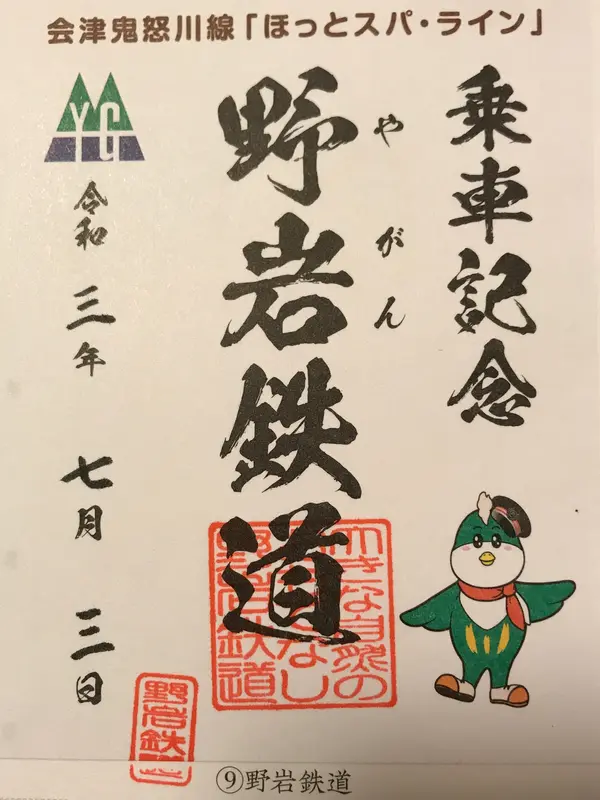 会津鬼怒川線「ほっとスパ・ライン」
乗車記念
野岩鉄道
やがん
YG
令和三年七月三日
大きな自然の
野岩鉄道
野岩鉄道
⑨野岩鉄道